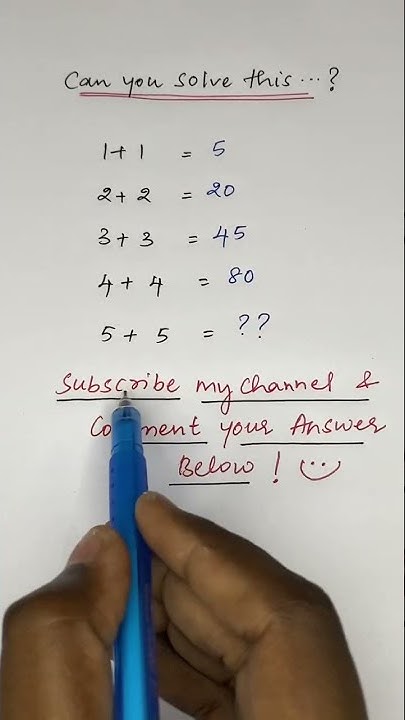 Can you solve this...?
1+1 = 5
2+2 = 20
3+3 = 45
4+4 = 80
5+5 = ??
Subscribe my channel &
your Answer
Below! :)